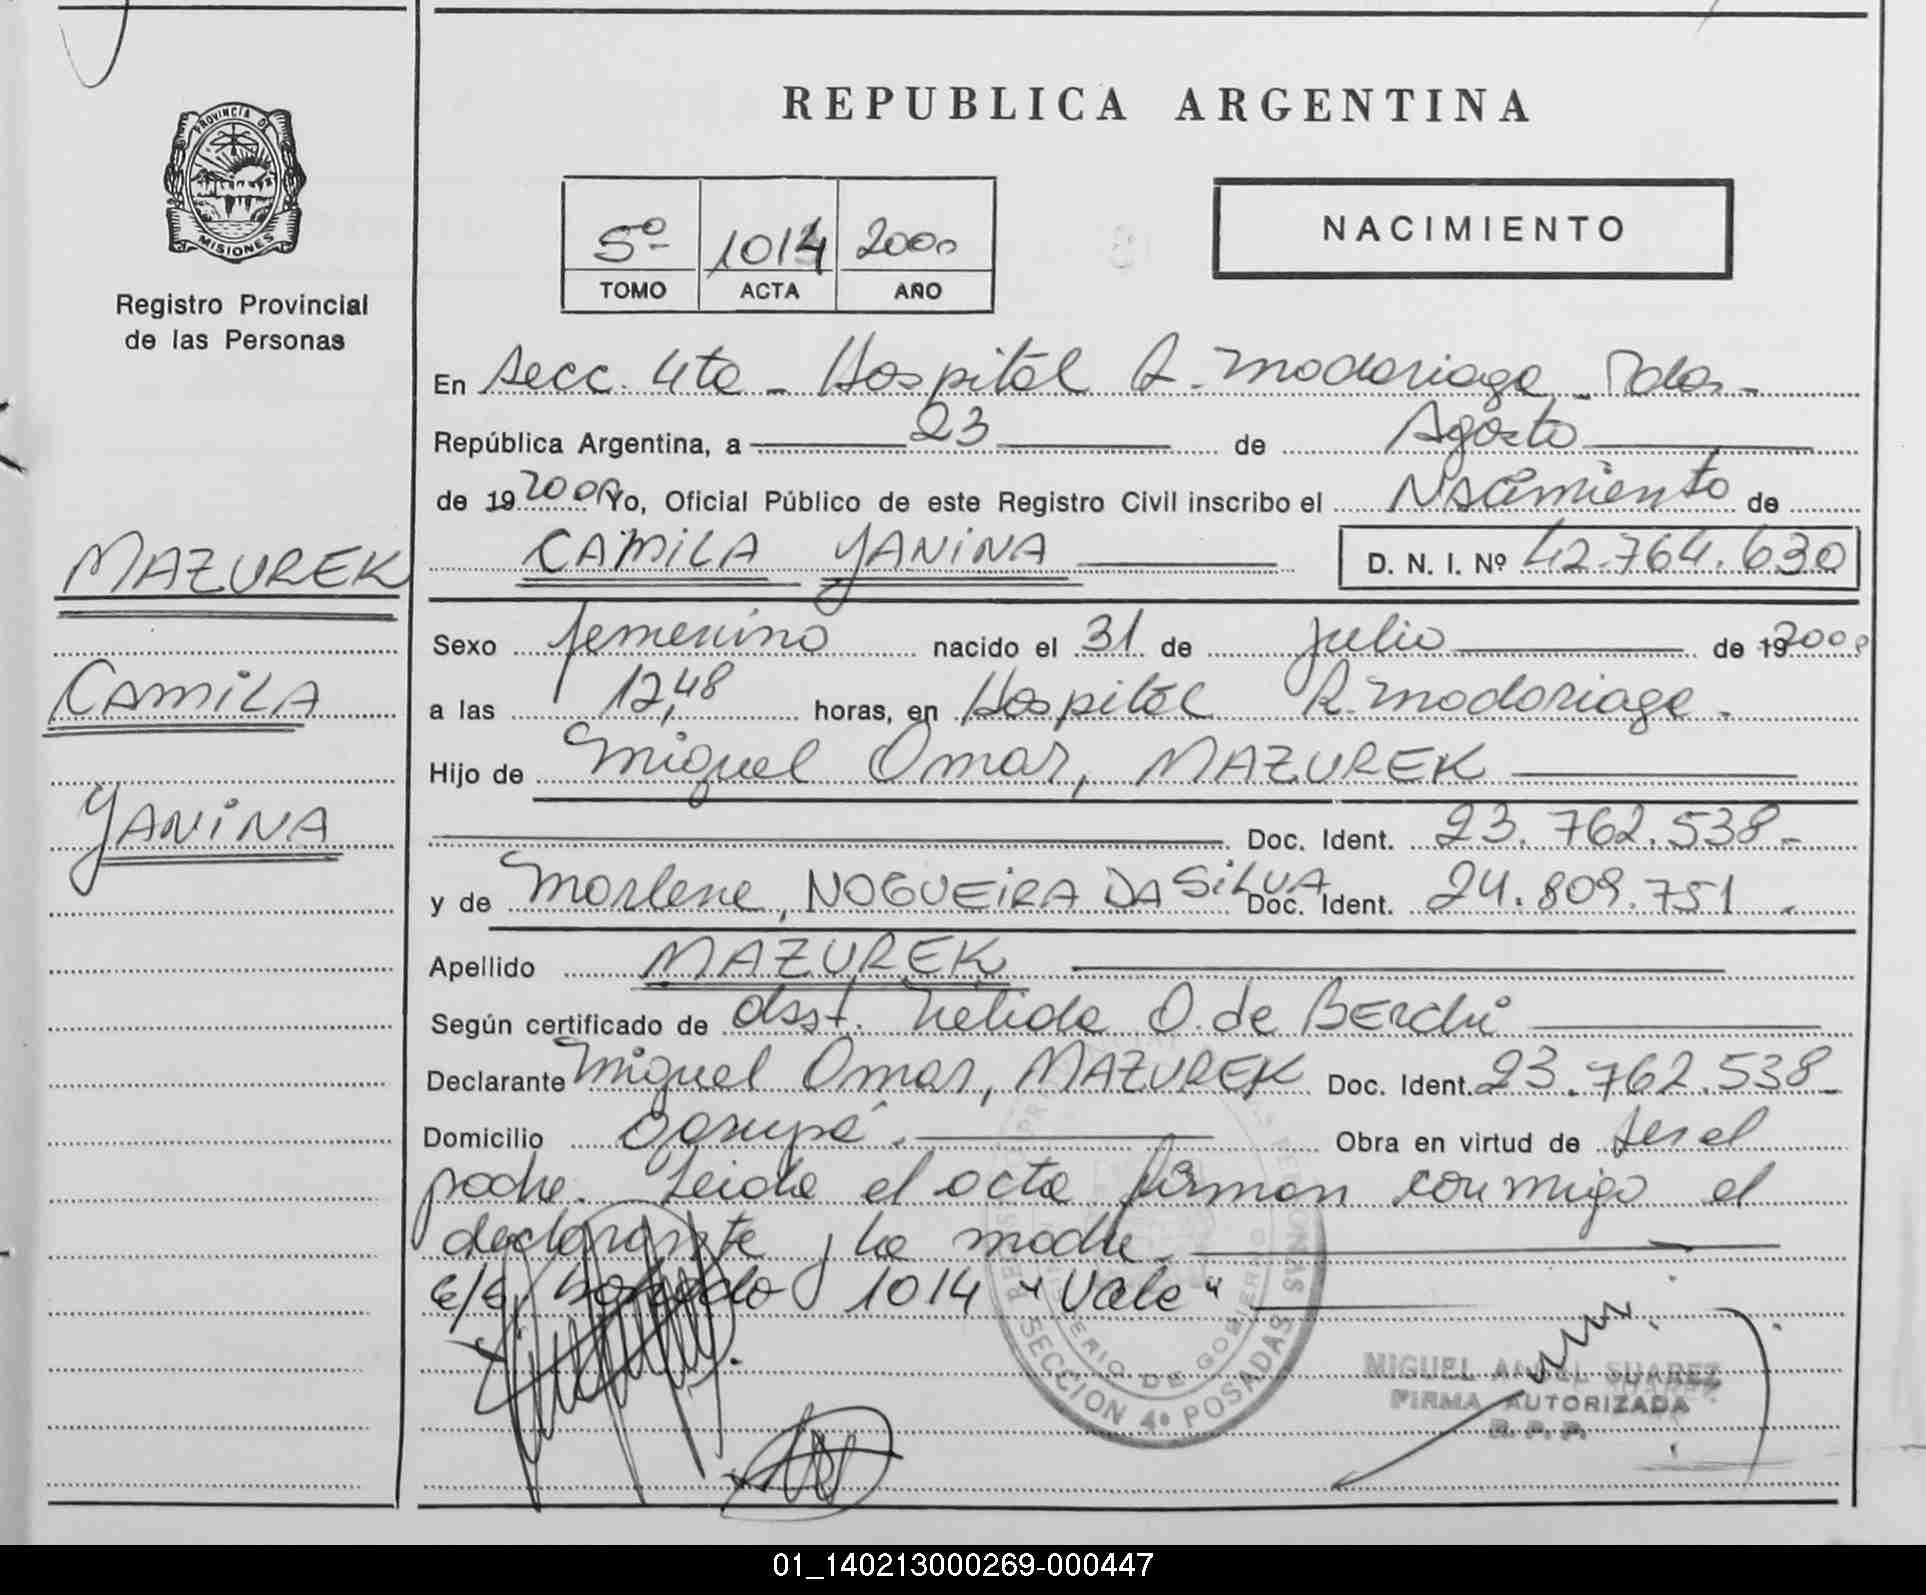 REPUBLICA ARGENTINA
PROVINCIA DE
MISIONES
Registro Provincial
de las Personas
5º 1014 2000
TOMO ACTA AÑO
NACIMIENTO
En secc. 4ta - Hospital R. Madariaga - Pdas -
República Argentina, a 23 de Agosto
de 19 2000 Yo, Oficial Público de este Registro Civil inscribo el Nacimiento de
CAMILA YANINA D. N. I. Nº 42.764.630
MAZUREK
Camila
YANINA
Sexo femenino nacido el 31 de Julio de 19 2000
a las 12,48 horas, en Hospital R. Madariaga.
Hijo de Miguel Omar, MAZUREK
Doc. Ident. 23.762.538-
y de Marlene, NOGUEIRA DA SILVA Doc. Ident. 24.809.751.
Apellido MAZUREK
Según certificado de obst. Nelida O. de Berchi
Declarante Miguel Omar, MAZUREK Doc. Ident. 23.762.538-
Domicilio Garupá. Obra en virtud de ser el
padre. Leida el acta firman conmigo el
declarante y la madre
e/e borrado 1014 "Vale"
SECCION 4ª POSADAS
MINISTERIO DE GOBIERNO
MIGUEL ANGEL SUAREZ
FIRMA AUTORIZADA
R. P. P.
01_140213000269-000447